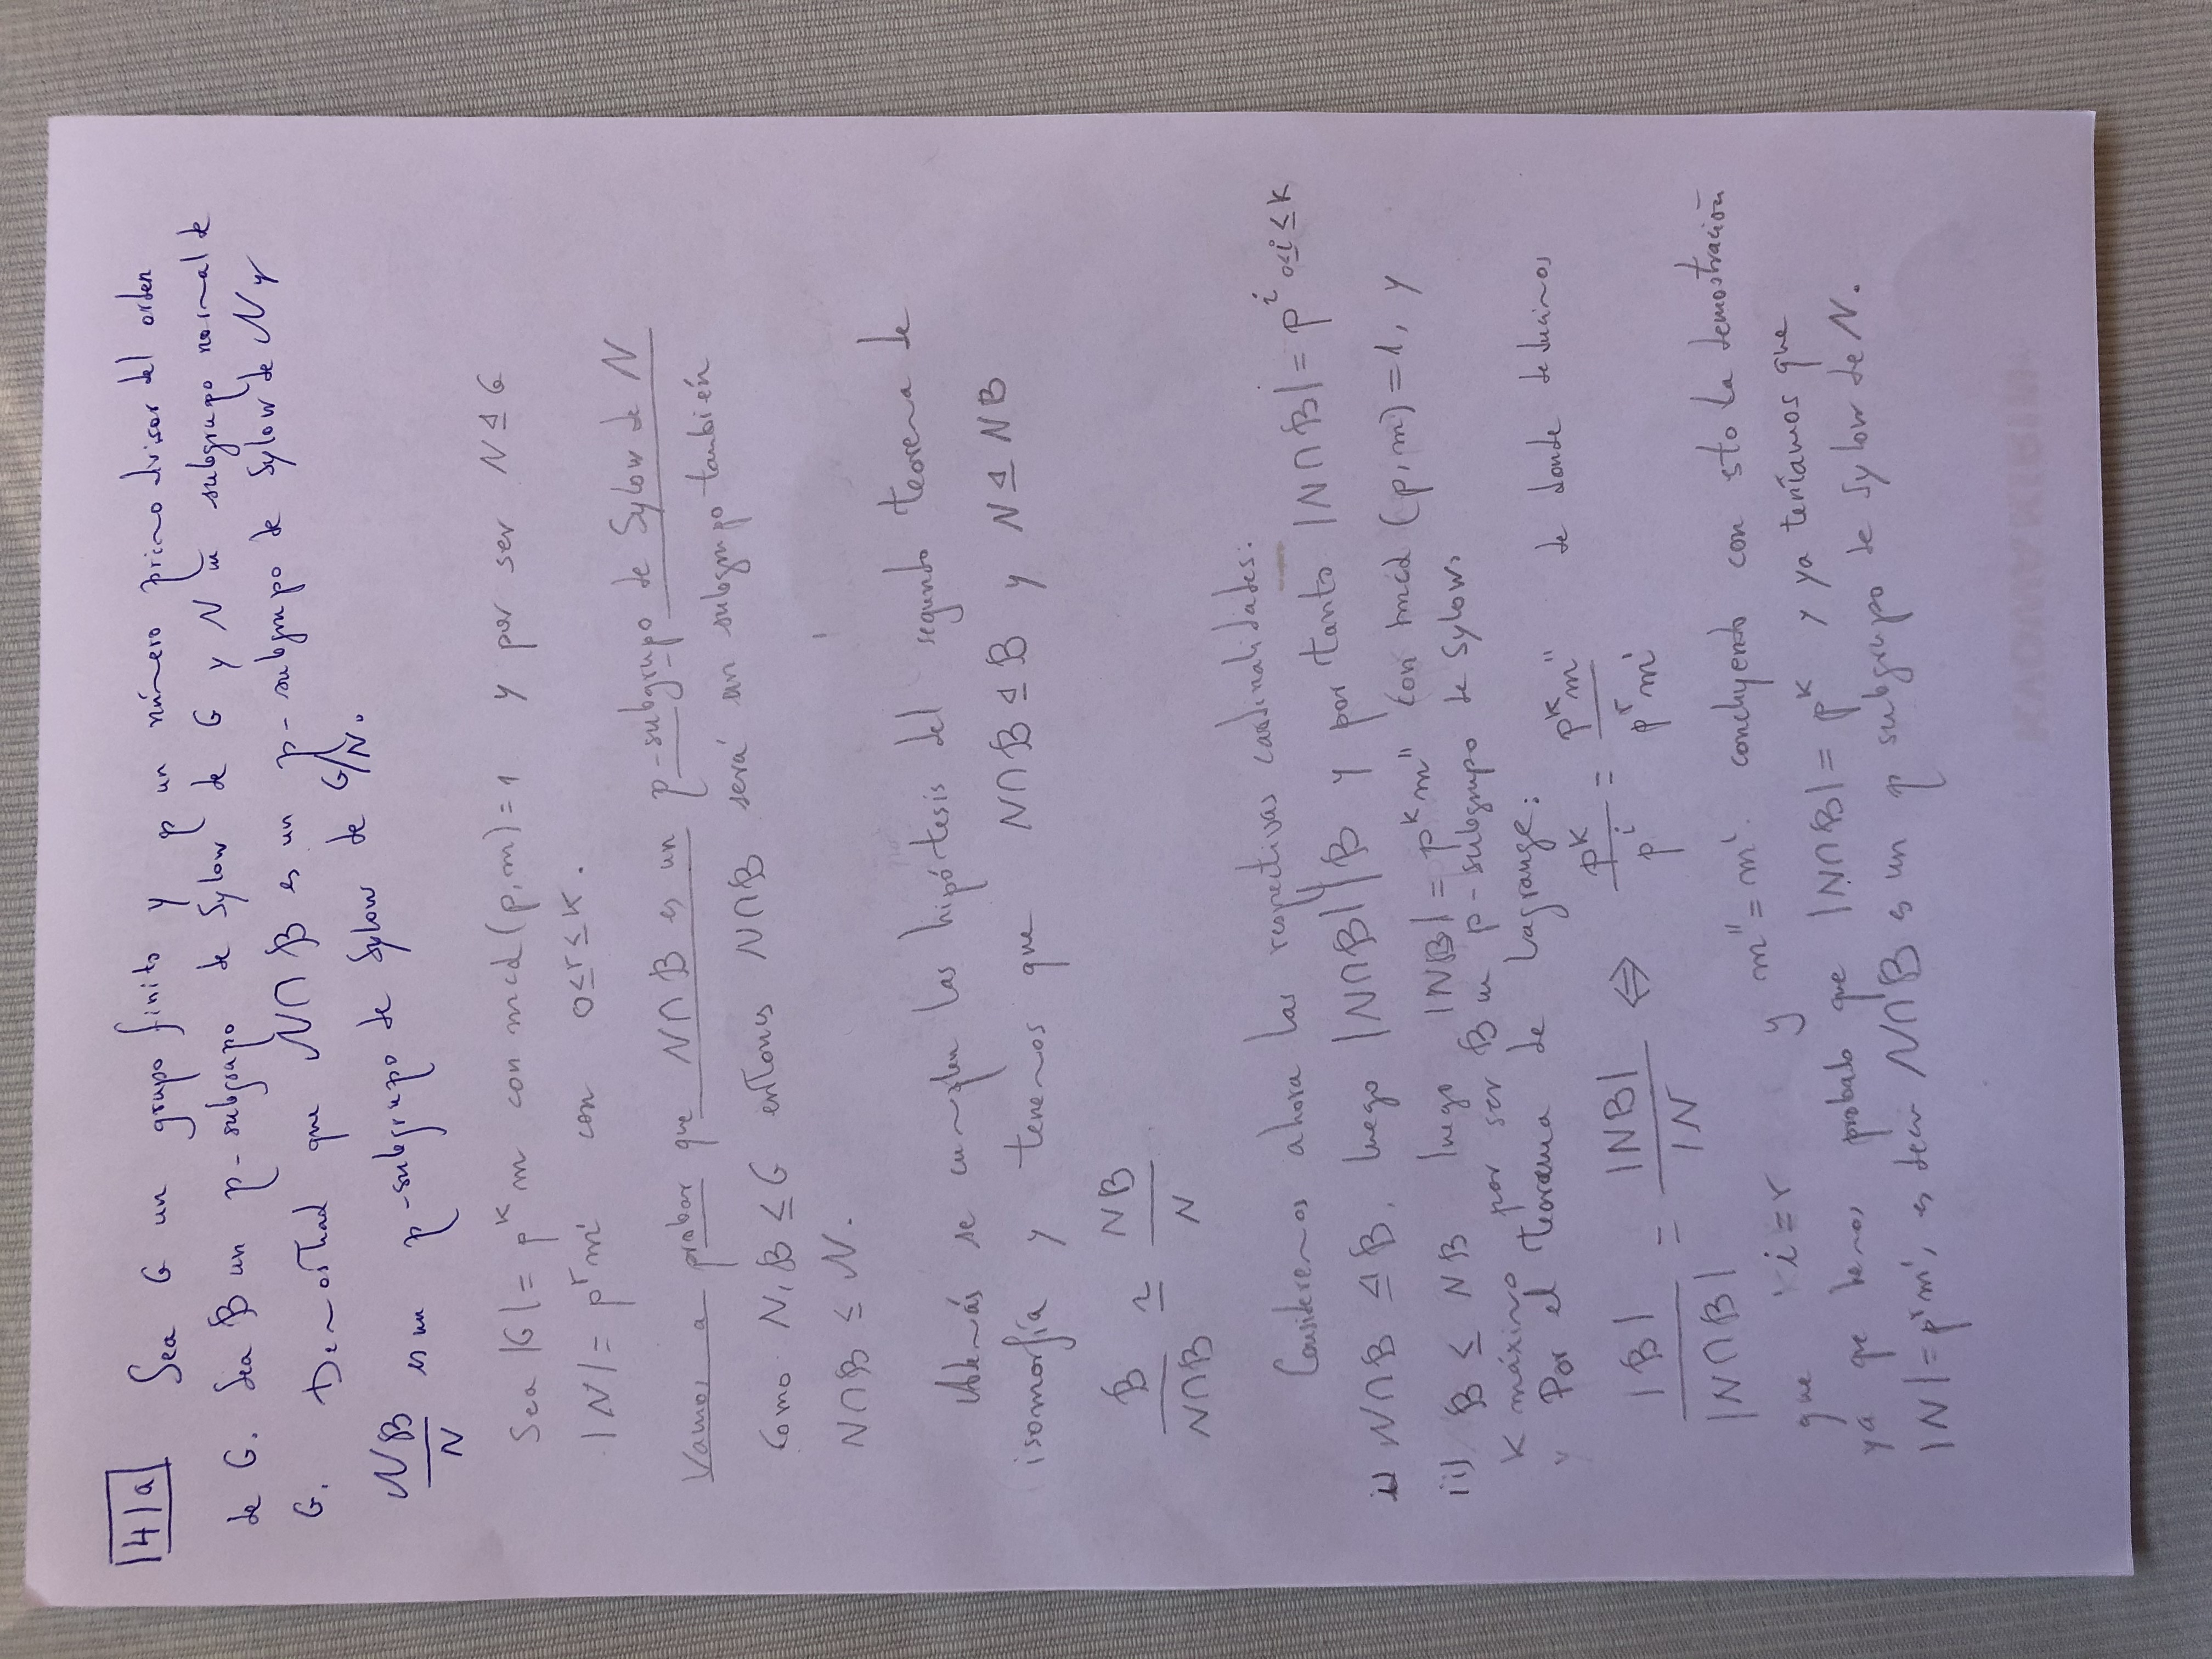 4|a Sea G un grupo finito y p un número primo divisor del orden
de G. Sea B un p-subgrupo de Sylow de G y N un subgrupo normal de
G. Demostrad que N∩B es un p-subgrupo de Sylow de N y
NB/N es un p-subgrupo de Sylow de G/N.
Sea |G| = p^k m con mcd(p,m)=1 y por ser N⊴G
|N| = p^r m' con 0≤r≤k.
Vamos a probar que N∩B es un p-subgrupo de Sylow de N
Como N,B ≤ G entonces N∩B será un subgrupo también
N∩B ≤ N.
Además se cumplen las hipótesis del segundo teorema de
isomorfía y tenemos que N∩B⊴B y N⊴NB
B/N∩B ≃ NB/N
Consideremos ahora las respectivas cardinalidades:
i) N∩B ⊴ B, luego |N∩B| | B y por tanto |N∩B| = p^i 0≤i≤k
ii) B ≤ NB luego |NB| = p^k m'' con mcd (p,m)=1, y
k máximo por ser B un p-subgrupo de Sylow.
Por el teorema de Lagrange:
|B|/|N∩B| = |NB|/|N ⇔ p^k/p^i = p^k m''/p^r m' de donde deducimos
que i=r y m''=m'. concluyendo con sto la demostración
ya que hemos probado que |N∩B| = p^k y ya teníamos que
|N|=p^r m', es decir N∩B es un p subgrupo de Sylow de N.